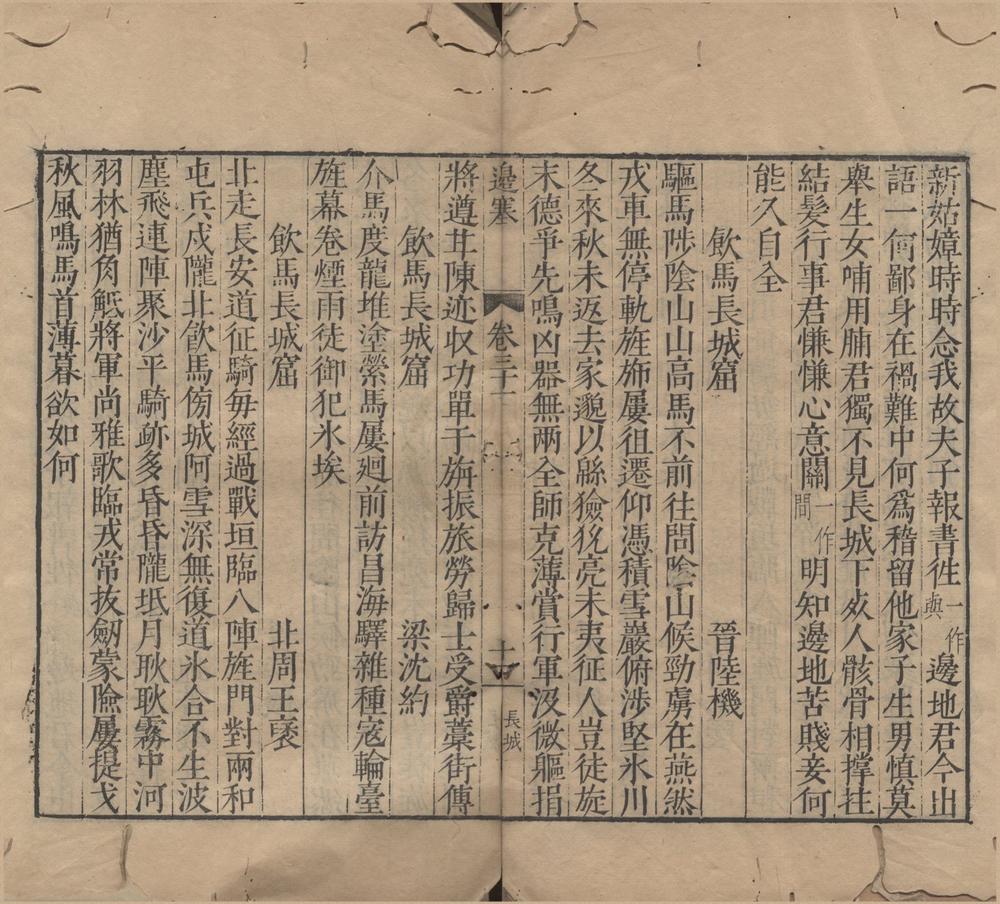 新姑嫜時時念我故夫子報書徃一作與邊地君今出
語一何鄙身在禍難中何爲稽留他家子生男慎莫
舉生女哺用脯君獨不見長城下𣦸人骸骨相撐拄
結髮行事君慊慊心意關一作間明知邊地苦賤妾何
能久自全
飲馬長城窟 晉陸機
驅馬陟陰山山高馬不前徃問陰山候勁虜在燕然
戎車無停軌旌斾屢徂遷仰憑積雪巖俯涉堅氷川
冬來秋未返去家邈以緜獫狁亮未夷征人豈徒旋
末德爭先鳴凶器無兩全師克薄賞行軍沒微軀捐
將遵甘陳迹收功單于旃振旅勞歸士受爵藁街傳
邊塞 卷三十一 十一 長城
飲馬長城窟 梁沈約
介馬度龍堆塗縈馬屢廻前訪昌海驛雜種寇輪臺
旌幕卷煙雨徒御犯氷埃
飲馬長城窟 北周王褒
北走長安道征騎每經過戰垣臨八陣旌門對兩和
屯兵戍隴北飲馬傍城阿雪深無復道氷合不生波
塵飛連陣聚沙平騎跡多昏昏隴坻月耿耿霧中河
羽林猶角觝將軍尚雅歌臨戎常拔劒蒙險屢提戈
秋風鳴馬首薄暮欲如何